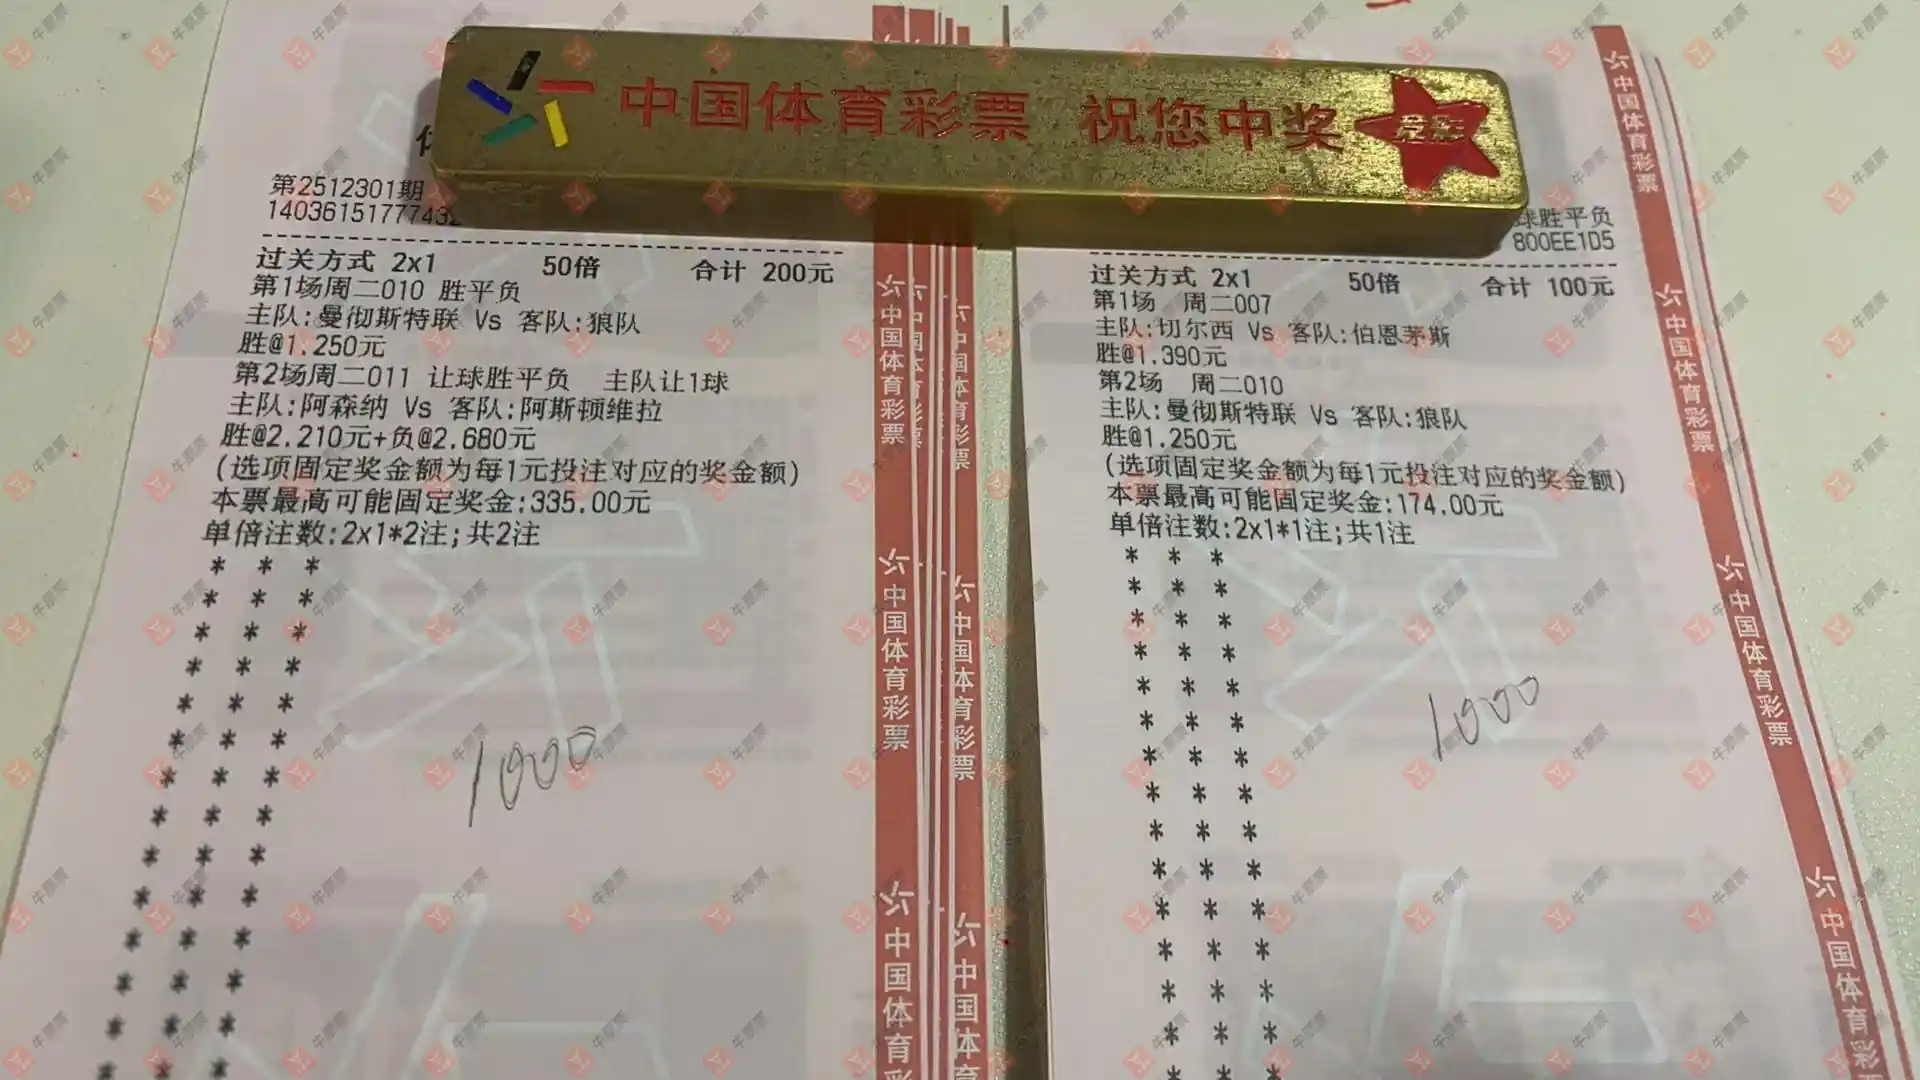 中国体育彩票 祝您中奖
第2512301期
140361517774
过关方式 2x1 50倍 合计 200元
第1场周二010 胜平负
主队:曼彻斯特联 Vs 客队:狼队
胜@1.250元
第2场周二011 让球胜平负 主队让1球
主队:阿森纳 Vs 客队:阿斯顿维拉
胜@2.210元+负@2.680元
(选项固定奖金额为每1元投注对应的奖金额)
本票最高可能固定奖金:335.00元
单倍注数:2x1*2注;共2注
1000
球胜平负
800EE1D5
过关方式 2x1 50倍 合计 100元
第1场 周二007
主队:切尔西 Vs 客队:伯恩茅斯
胜@1.390元
第2场 周二010
主队:曼彻斯特联 Vs 客队:狼队
胜@1.250元
(选项固定奖金额为每1元投注对应的奖金额)
本票最高可能固定奖金:174.00元
单倍注数:2x1*1注;共1注
1000
中国体育彩票
中国体育彩票
中国体育彩票
中国体育彩票
中国体育彩票
中国体育彩票
中国体育彩票